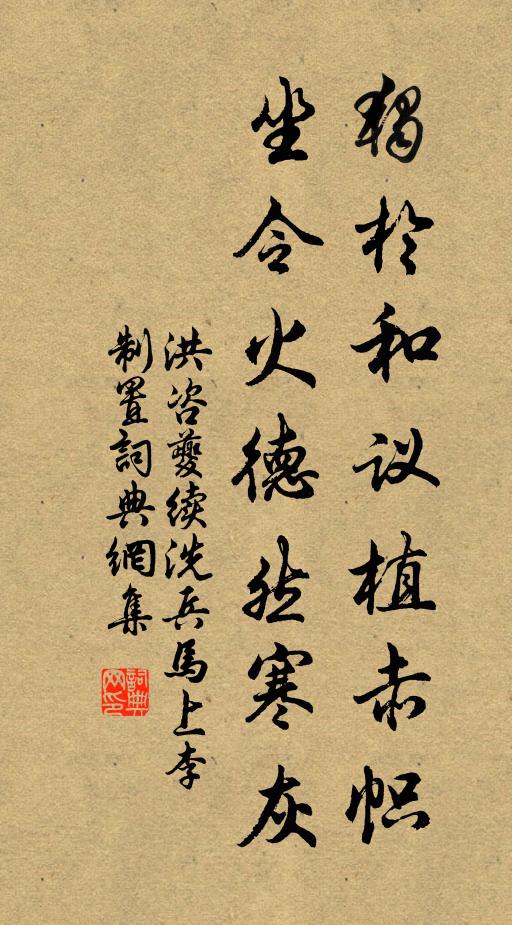 独于和议植赤帜
坐令火德然寒灰
洪咨夔续洗兵馬上李
制置詞典網集
詞典網印